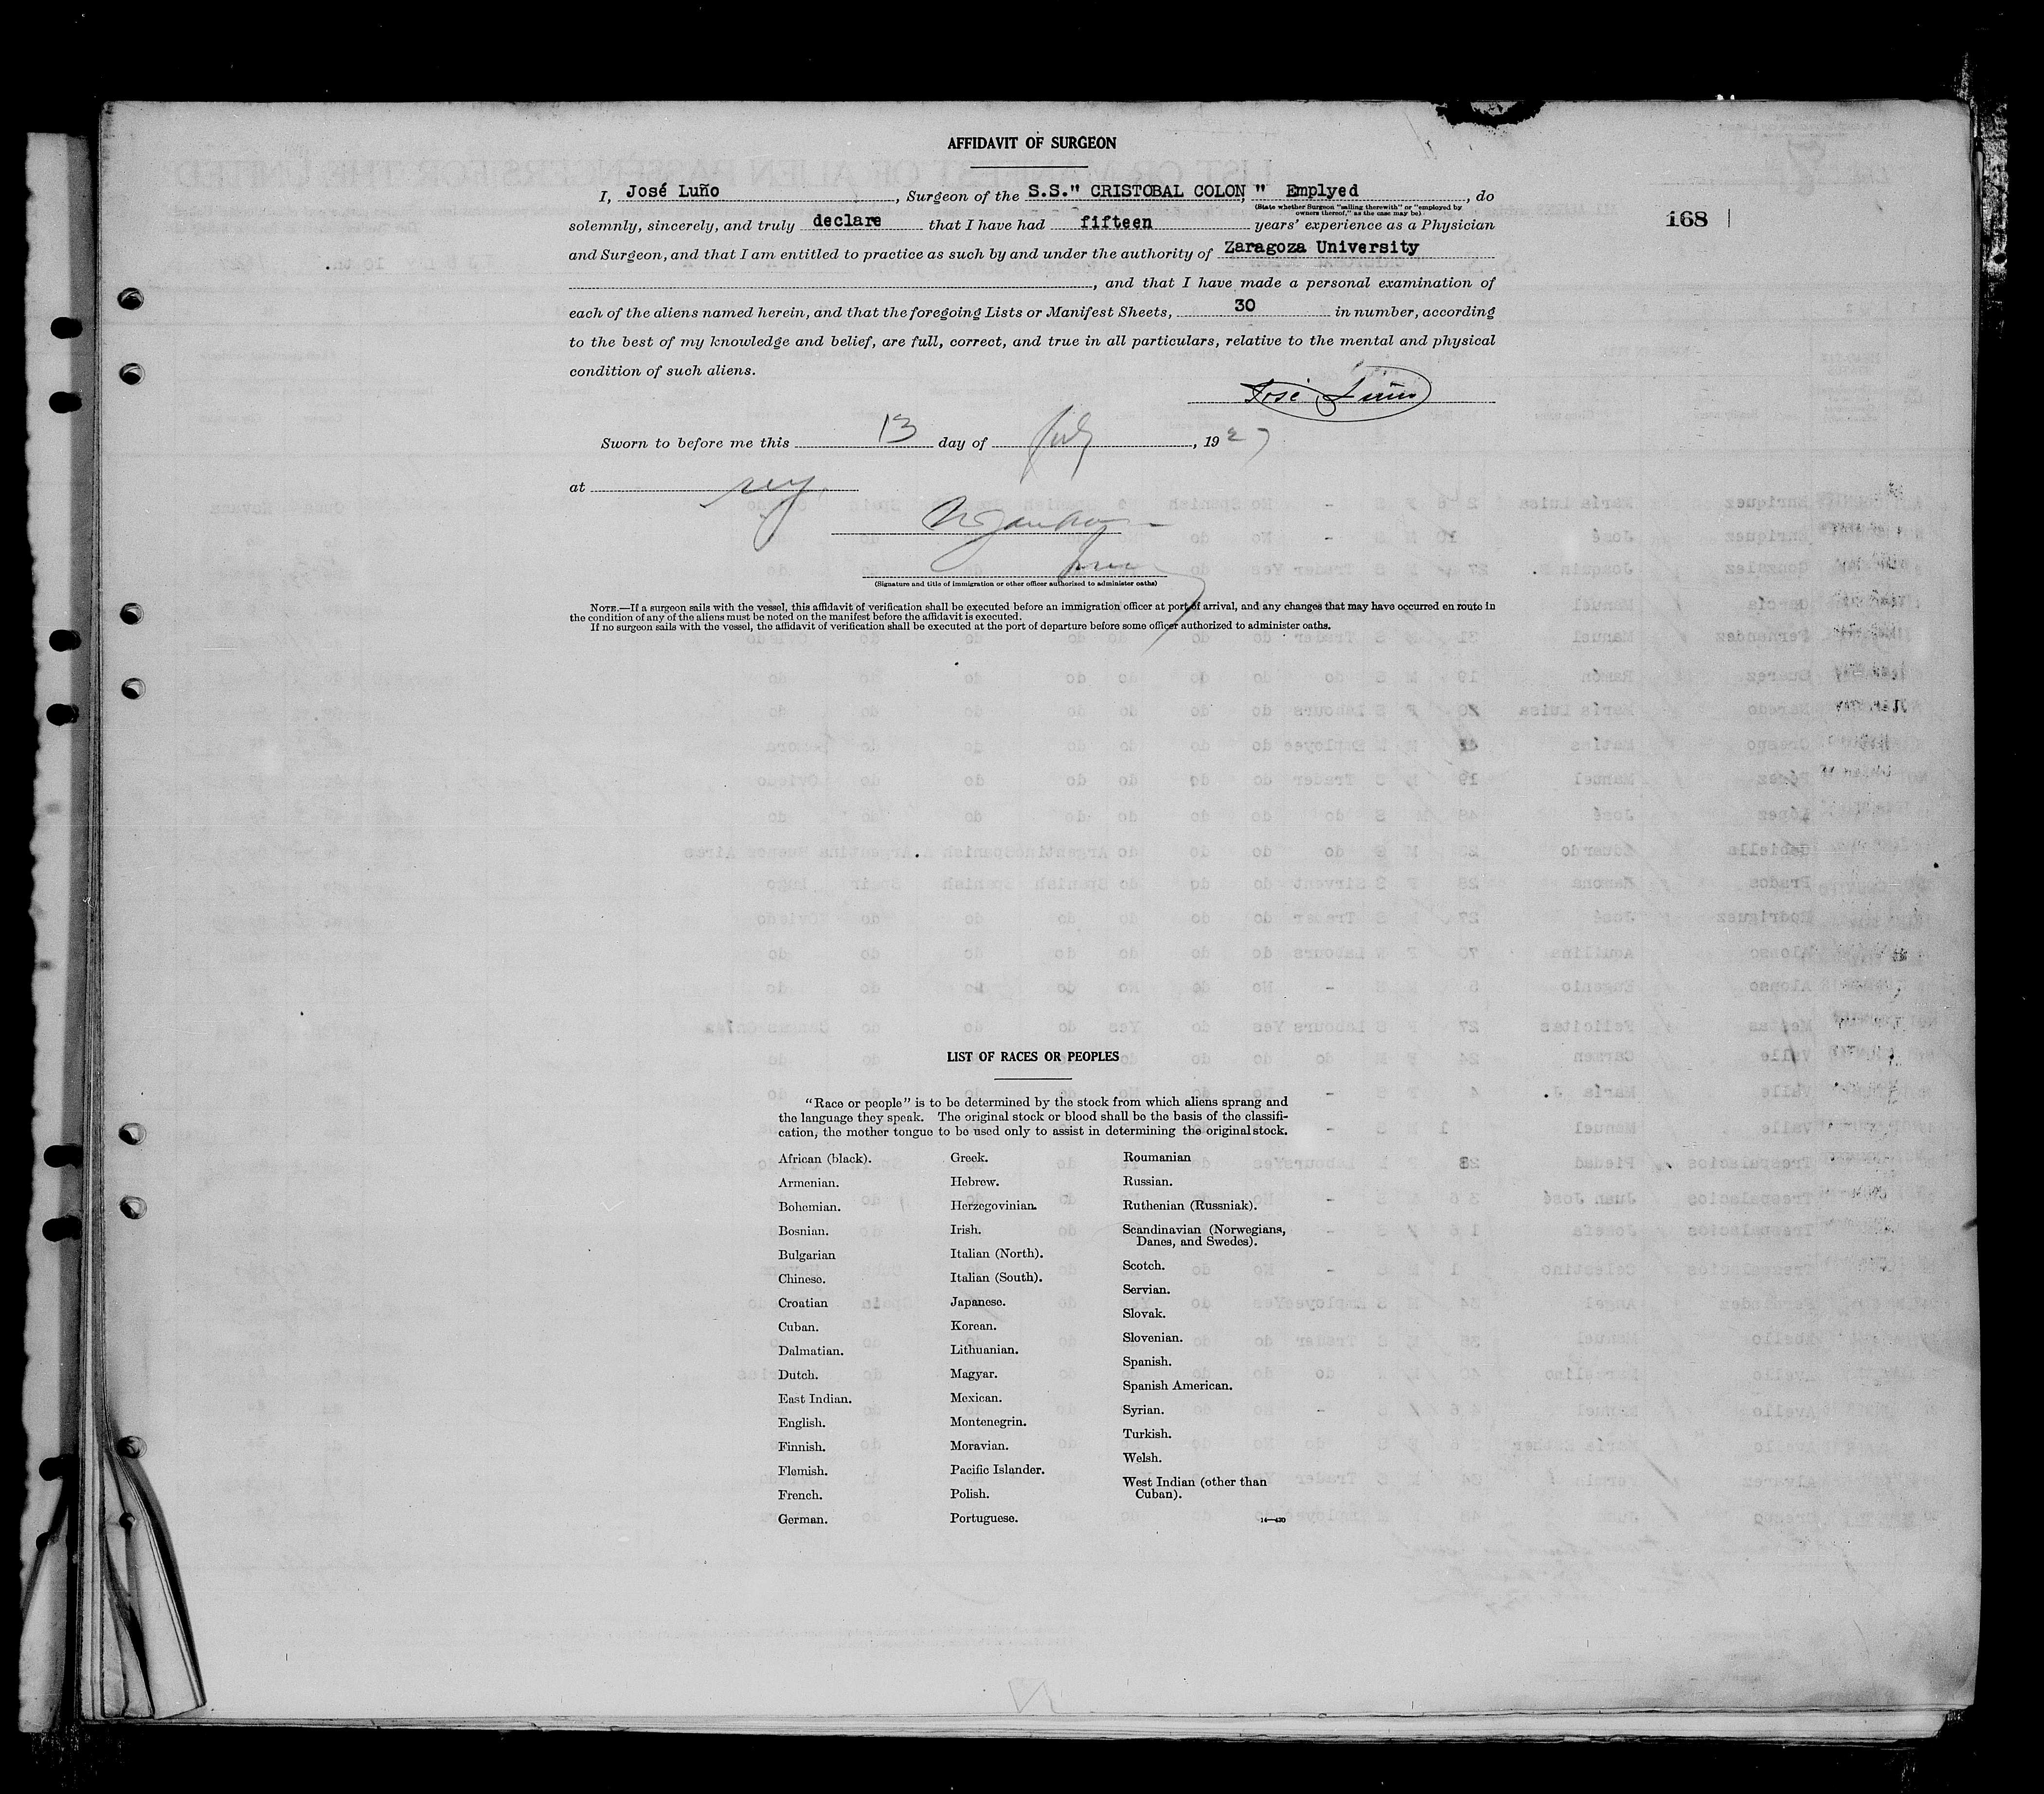 AFFIDAVIT OF SURGEON
I, José Luño, Surgeon of the S.S." CRISTOBAL COLON, " Emplyed, do
(State whether Surgeon "sailing therewith" or "employed by
owners thereof," as the case may be)
168
solemnly, sincerely, and truly declare that I have had fifteen years' experience as a Physician
and Surgeon, and that I am entitled to practice as such by and under the authority of Zaragoza University
, and that I have made a personal examination of
each of the aliens named herein, and that the foregoing Lists or Manifest Sheets, 30 in number, according
to the best of my knowledge and belief, are full, correct, and true in all particulars, relative to the mental and physical
condition of such aliens.
José Luño
Sworn to before me this 13 day of July, 1927
at NY
(Signature and title of immigration or other officer authorized to administer oaths)
NOTE.—If a surgeon sails with the vessel, this affidavit of verification shall be executed before an immigration officer at port of arrival, and any changes that may have occurred en route in
the condition of any of the aliens must be noted on the manifest before the affidavit is executed.
If no surgeon sails with the vessel, the affidavit of verification shall be executed at the port of departure before some officer authorized to administer oaths.
LIST OF RACES OR PEOPLES
"Race or people" is to be determined by the stock from which aliens sprang and
the language they speak. The original stock or blood shall be the basis of the classifi-
cation, the mother tongue to be used only to assist in determining the original stock.
African (black).
Armenian.
Bohemian.
Bosnian.
Bulgarian
Chinese.
Croatian
Cuban.
Dalmatian.
Dutch.
East Indian.
English.
Finnish.
Flemish.
French.
German.
Greek.
Hebrew.
Herzegovinian.
Irish.
Italian (North).
Italian (South).
Japanese.
Korean.
Lithuanian.
Magyar.
Mexican.
Montenegrin.
Moravian.
Pacific Islander.
Polish.
Portuguese.
Roumanian
Russian.
Ruthenian (Russniak).
Scandinavian (Norwegians,
Danes, and Swedes).
Scotch.
Servian.
Slovak.
Slovenian.
Spanish.
Spanish American.
Syrian.
Turkish.
Welsh.
West Indian (other than
Cuban).
14—430